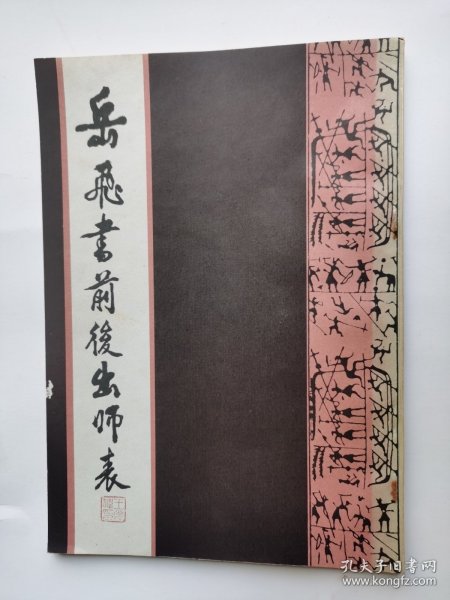 岳飛書前後出師表
孔夫子旧书网
www.kongfz.com